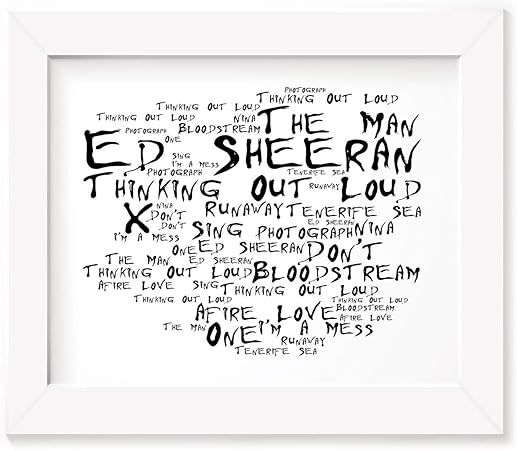 PHOTOGRAPH
THINKING OUT LOUD
THINKING OUT LOUD
THINKING OUT LOUD NINA THE MAN
PHOTOGRAPH BLOODSTREAM
ONE
ED SHEERAN
SING
I'M A MESS
PHOTOGRAPH TENERIFE SEA
THINKING OUT LOUD
RUNAWAY
NINA
X DON'T RUNAWAY TENERIFE SEA
DON'T SING PHOTOGRAPH NINA
ED SHEERAN
I'M A MESS
ONE ED SHEERAN DON'T
THE MAN ED SHEERAN
THINKING OUT LOUD BLOODSTREAM
AFIRE LOVE SING THINKING OUT LOUD
THINKING OUT LOUD THINKING OUT LOUD
AFIRE LOVE BLOODSTREAM
AFIRE LOVE
THE MAN ONE I'M A MESS
RUNAWAY
TENERIFE SEA